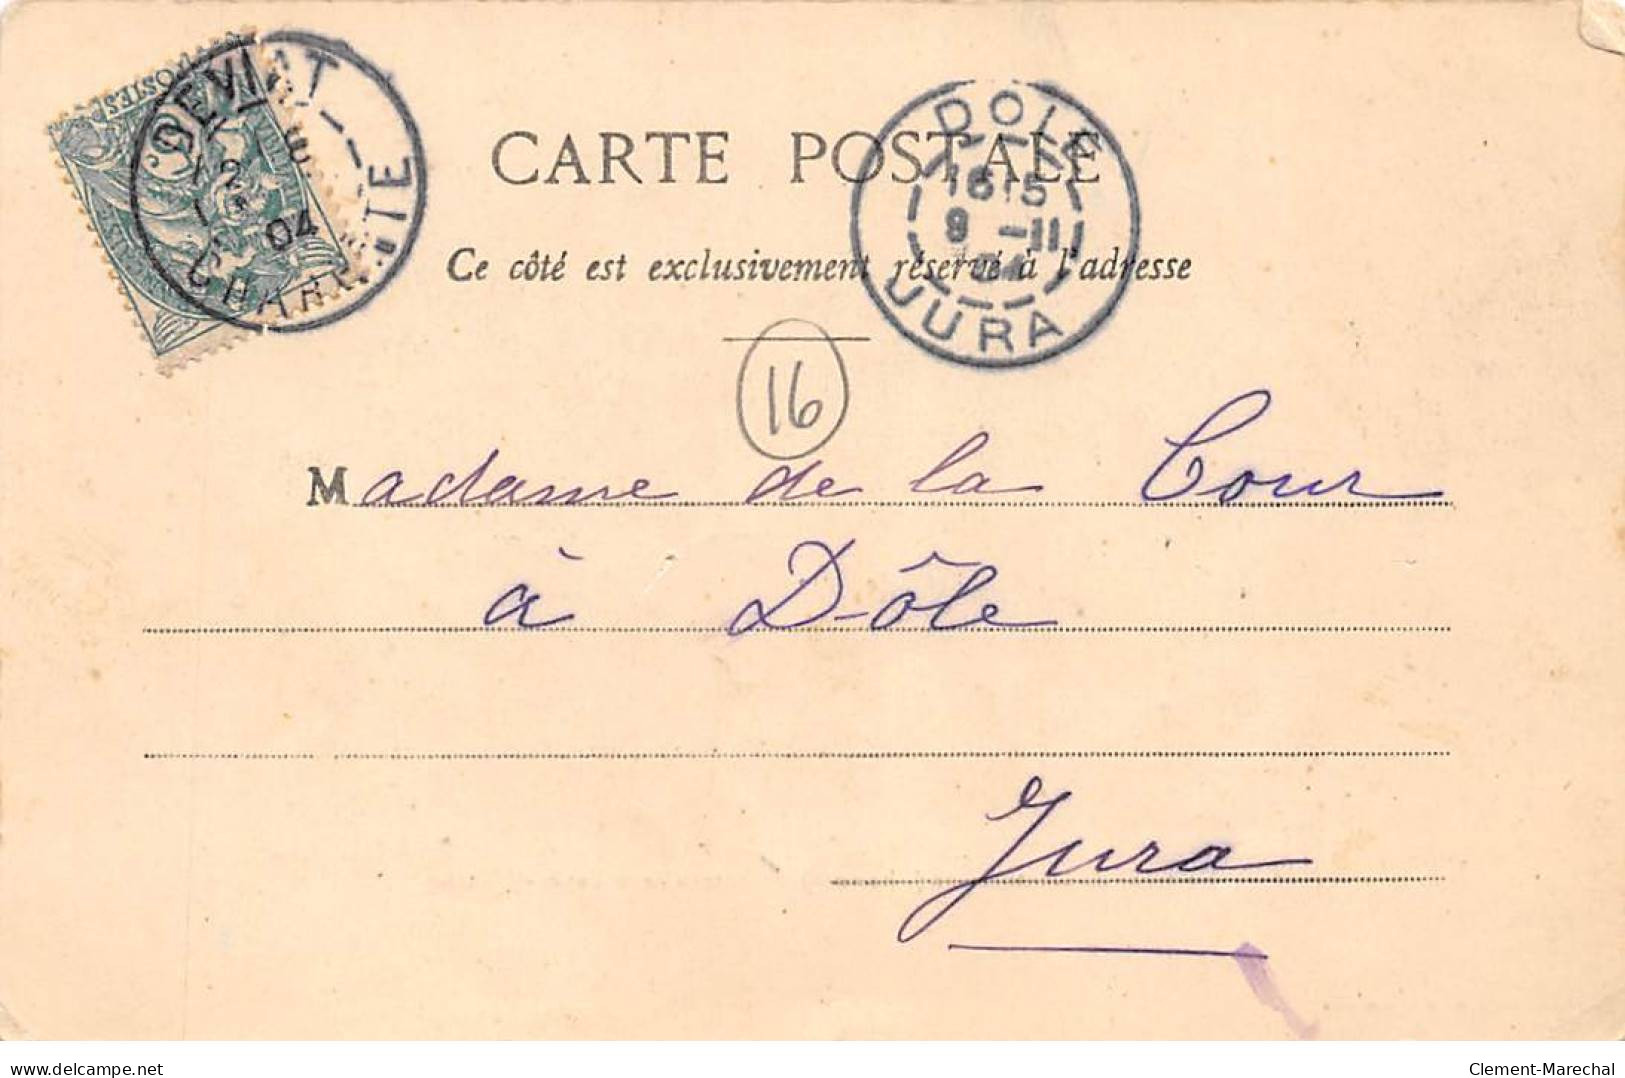 POSTES
DEVIAT
12
04
CHARENTE
DOLE
16 15
9 -11
04
JURA
CARTE POSTALE
Ce côté est exclusivement réservé à l'adresse
16
Madame de la Cour
à Dôle
Jura
delcampe.net
Clement-Marechal